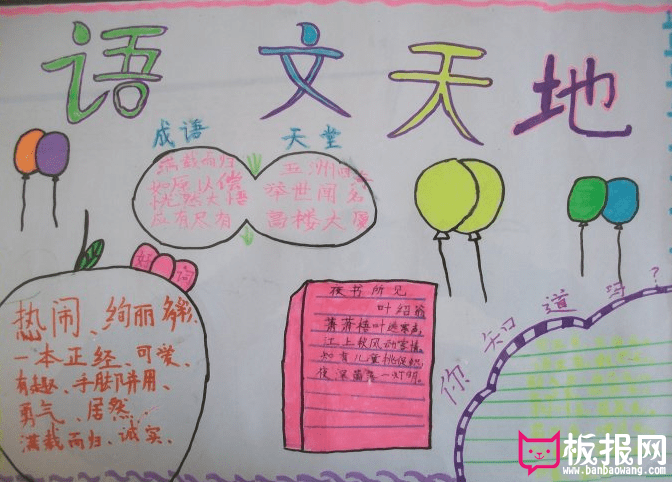 语文天地
成语 天堂
满载而归
如原以偿
恍然大悟
应有尽有
五洲四
举世闻名
高楼大厦
好词
热闹、绚丽多彩、
一本正经、可爱、
有趣、手脚并用、
勇气、居然、
满载而归、诚实、
夜书所见
叶绍翁
萧萧梧叶送寒声,
江上秋风动客情。
知有儿童挑促织,
夜深篱落一灯明。
你知道吗?
板报网
www.banbaowang.com